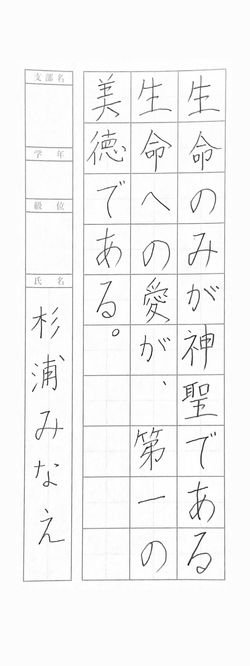 生命のみが神聖である
生命への愛が、第一の
美徳である。
支部名
学年
級位
氏名
杉浦みなえ